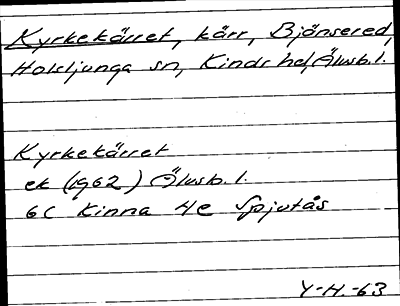 Kyrkekärret, kärr, Bjönsered,
Holsljunga sn, Kinds hd, Älvsb. l.
Kyrkekärret
ek (1962) Älvsb. l.
6C Kinna 4e Spjutås
Y-H.-63